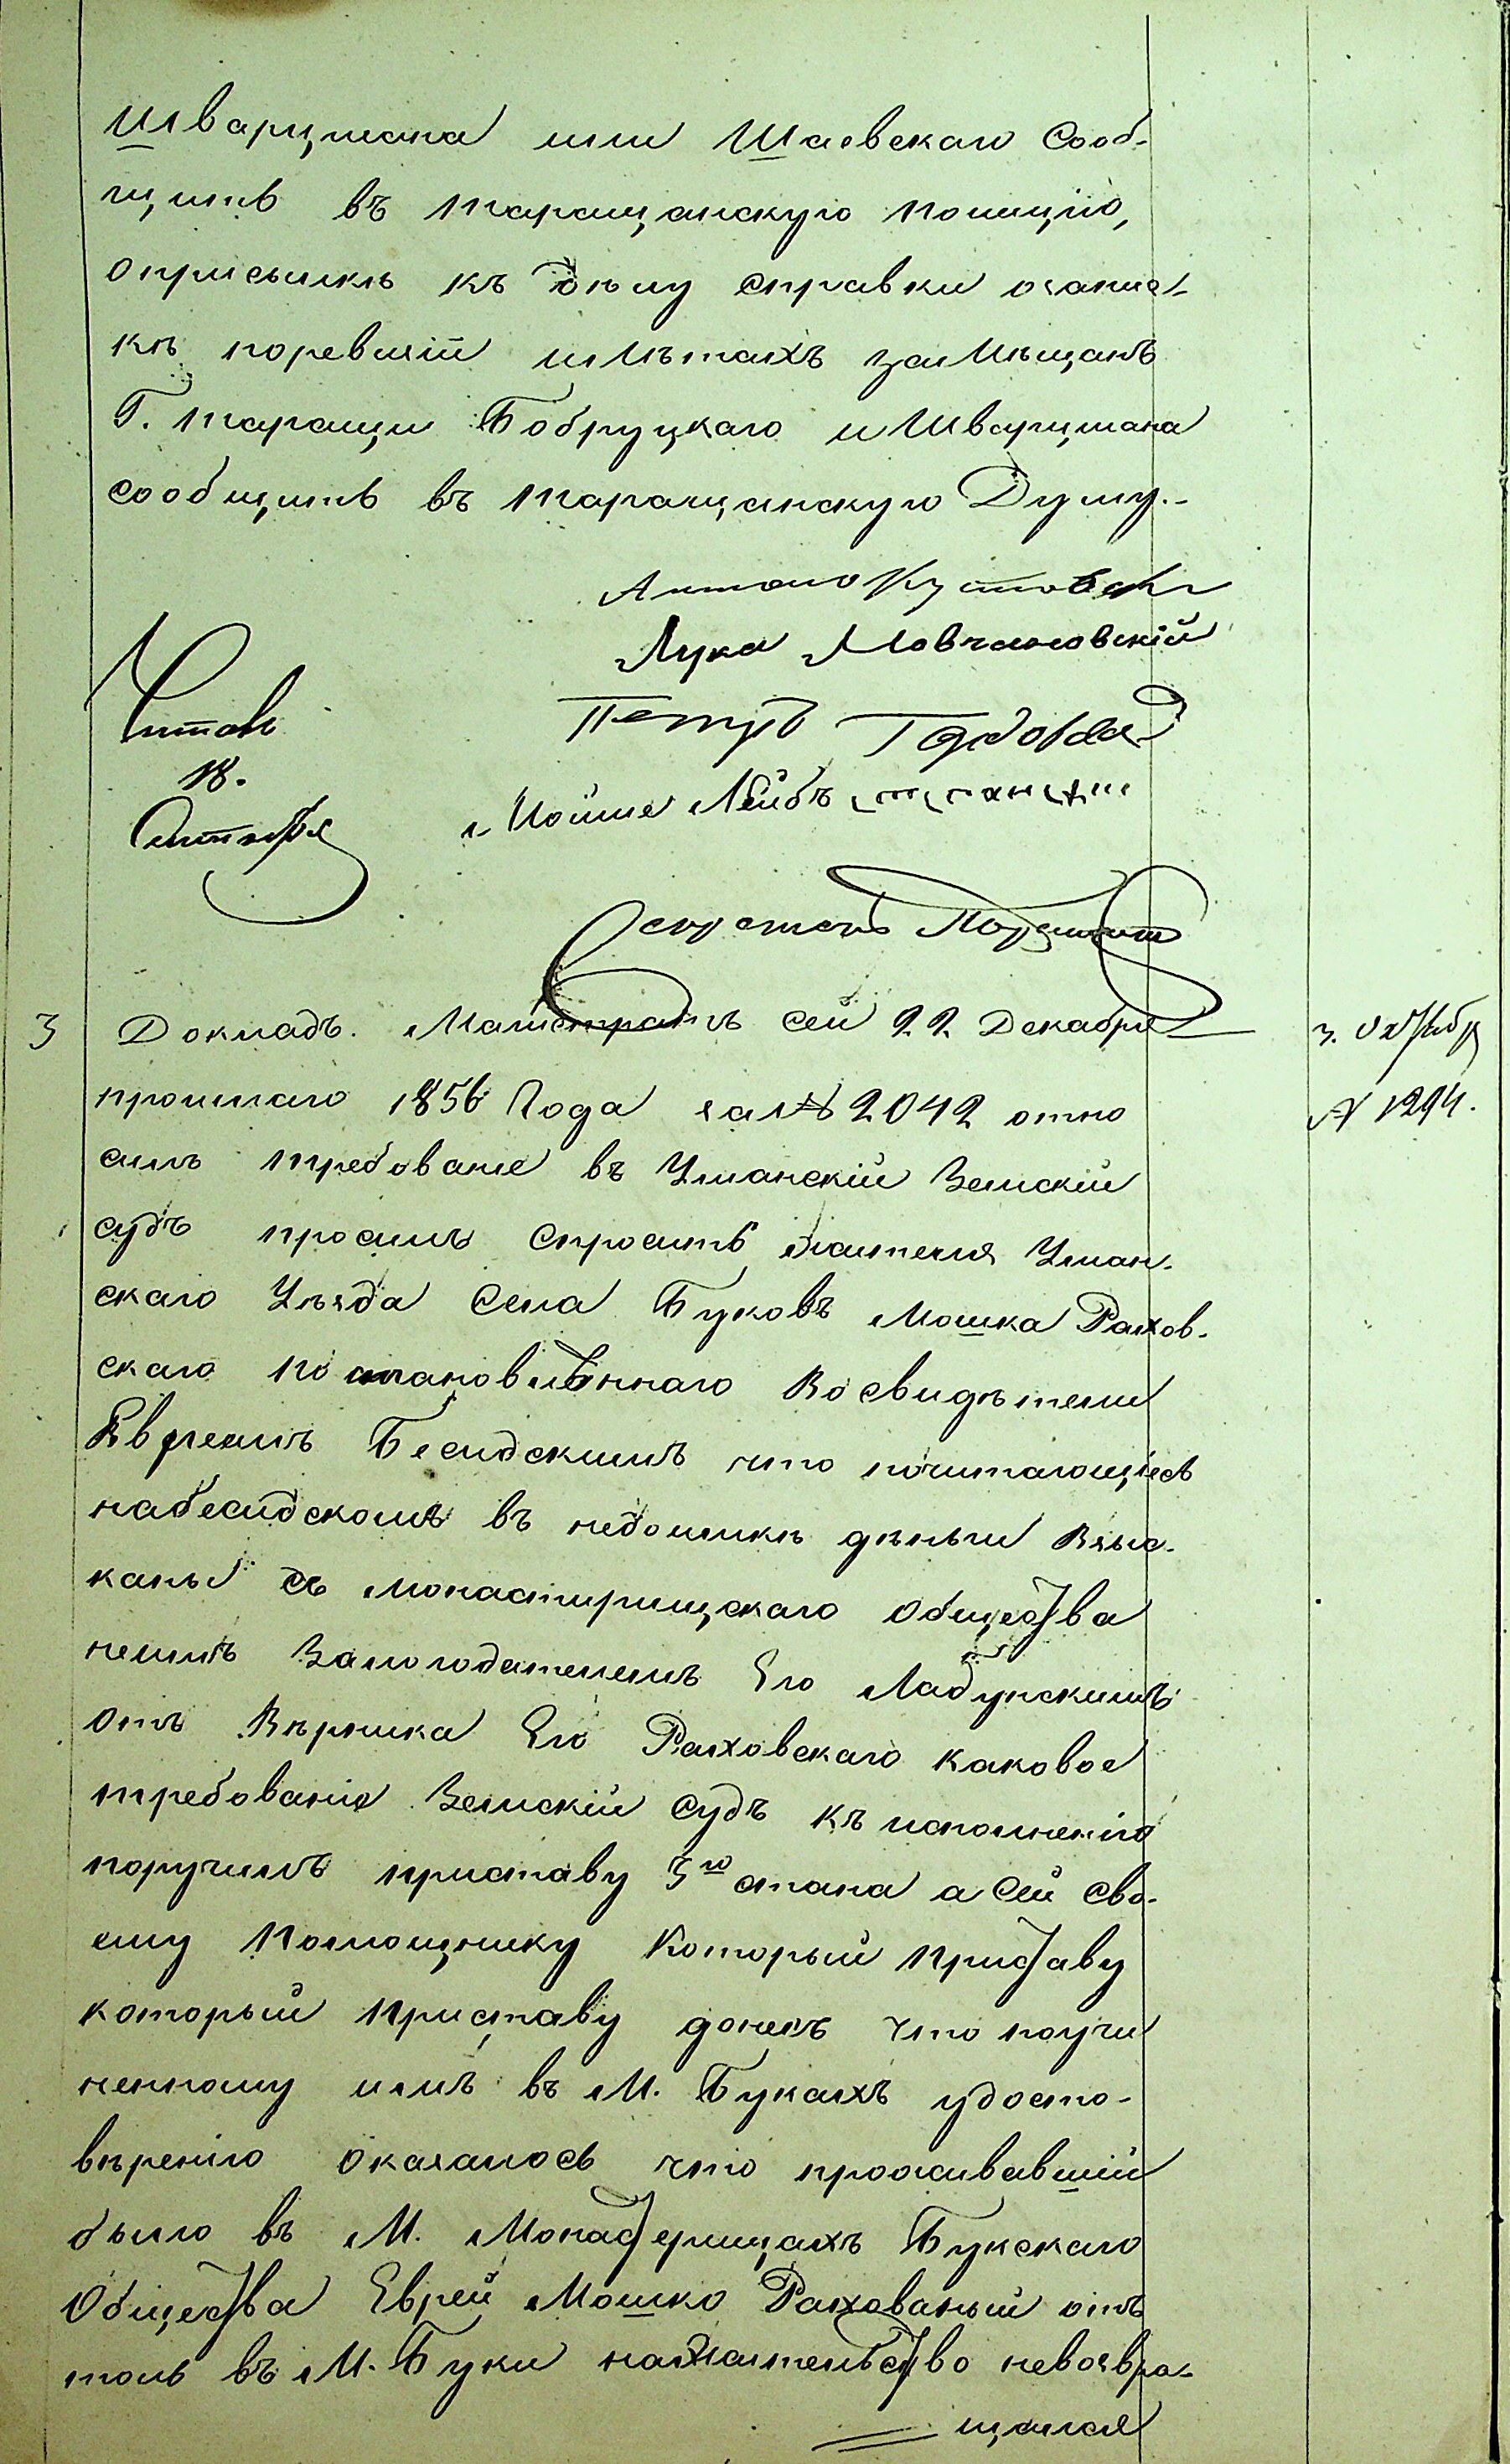 Шварцмана или Шаевскаго Сооб-
щить въ Таращанскую Полицію,
оприсылкѣ къ дѣлу справки осписа-
кѣ поревизіи илѣтахъ заМѣщанъ
Г. Таращи Бобруцкаго и Шварцмана
сообщить въ Таращанскую Думу.-
Лука Мовчановскій
Петръ
Мойше Лейбъ
Читалъ
18.
Октября
Секретарь
3 Докладъ. Магистратъ сей 22 Декабря
3. Октября
№ 1294.
прошлаго 1856 Года за№ 2042 отно
силъ требованіе въ Уманскій Земскій
судъ просилъ спросить жителя Уман-
скаго Уѣзда Села Буковъ Мошка Рахов-
скаго постановленнаго Восвидѣтели
Евреемъ Бесидскимъ что почитающіесъ
наБесидскомъ въ недоимкѣ дѣньги Взыс-
каны съ Монастирищскаго общества
нешлъ Залогодателемъ Его Ладунскимъ
отъ Вѣрника Его Раховскаго каковое
требованіе Земскій Судъ къ исполненію
поручилъ приставу 3го стана а Сей Сво-
ему Помощнику Который Приставу
который Приставу донесъ что поучи
ненному имъ въ М. Букахъ удосто-
вѣренію оказалось что проживавшій
было въ М. Монастерищахъ Букскаго
Общества Еврей Мошко Рахованый отъ
толь въ М. Буки нажительство невозвра-
щался